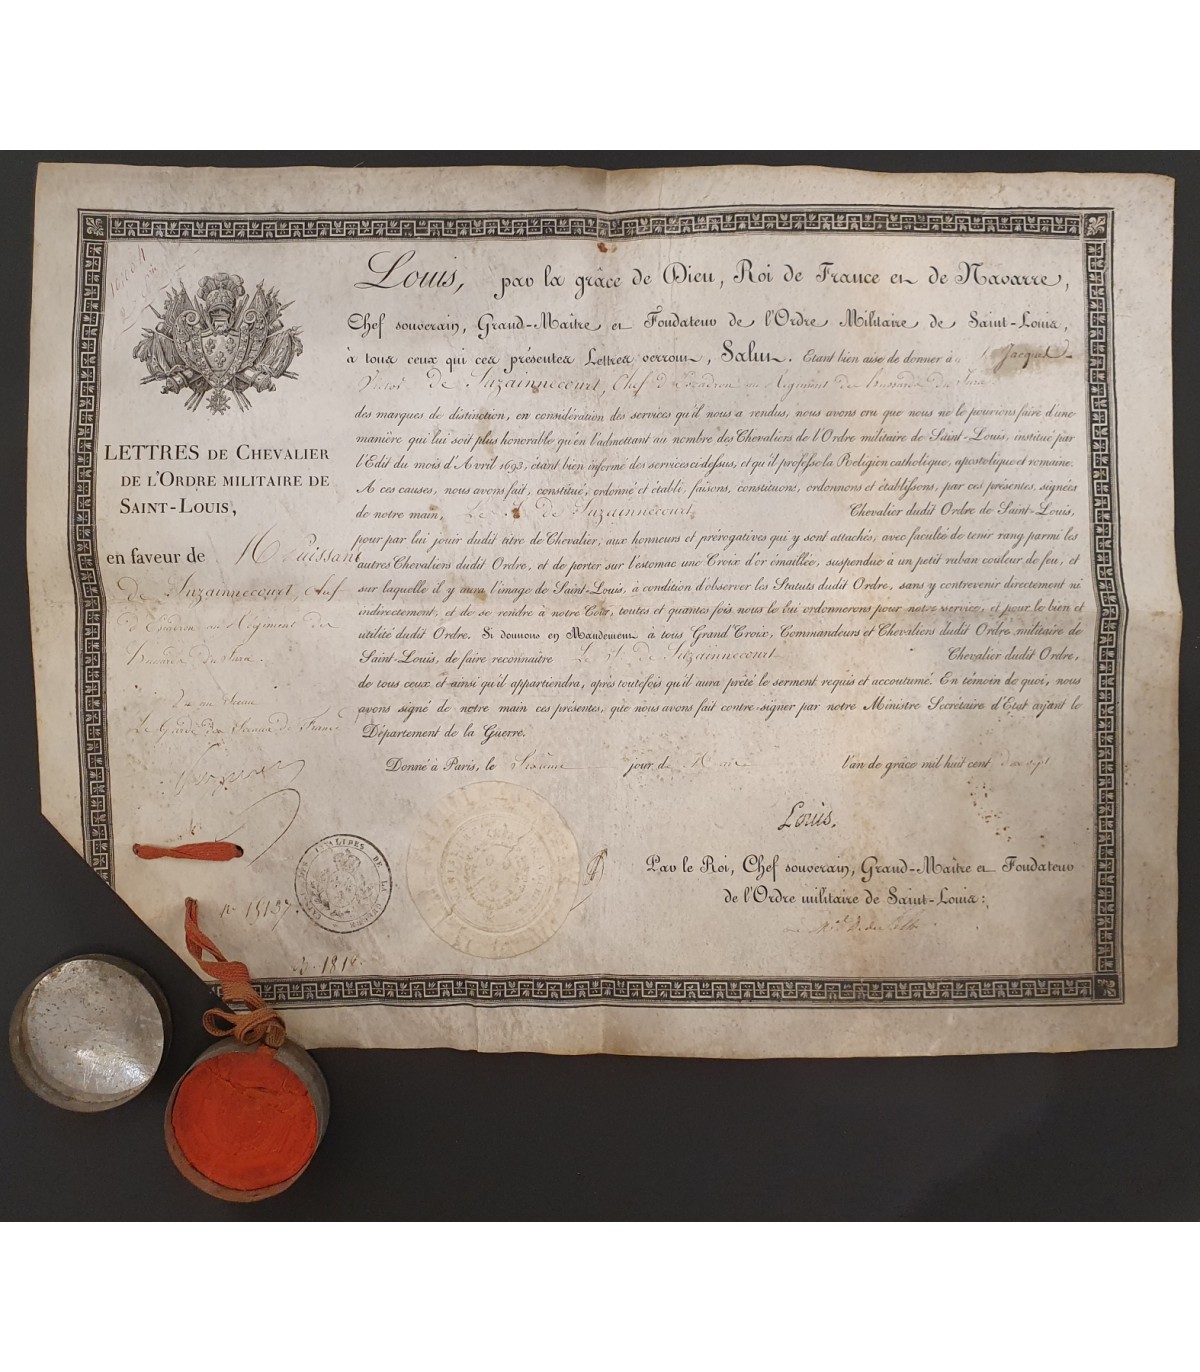 16104
LETTRES DE CHEVALIER
DE L'ORDRE MILITAIRE DE
SAINT-LOUIS,
en faveur de M Puissant
de Suzainnecourt, chef
d'Escadron au Régiment des
hussards du Jura.
Vu au Sceau
Le Garde des Sceaux de France
N° 15197.
Louis, par la grâce de Dieu, Roi de France et de Navarre,
Chef souverain, Grand-Maître et Fondateur de l'Ordre Militaire de Saint-Louis,
à tous ceux qui ces présentes Lettres verront, Salut. Etant bien aise de donner à Jacques
Victor de Suzainnecourt, Chef d'Escadron au Régiment de hussards du Jura
des marques de distinction, en considération des services qu'il nous a rendus, nous avons cru que nous ne le pouvions faire d'une
manière qui lui soit plus honorable qu'en l'admettant au nombre des Chevaliers de l'Ordre militaire de Saint-Louis, institué par
l'Edit du mois d'Avril 1693, étant bien informé des services ci-dessus, et qu'il professe la Religion catholique, apostolique et romaine.
A ces causes, nous avons fait, constitué, ordonné et établi, faisons, constituons, ordonnons et établissons, par ces présentes, signées
de notre main, Le S. de Suzainnecourt Chevalier dudit Ordre de Saint-Louis,
pour par lui jouir dudit titre de Chevalier, aux honneurs et prérogatives qui y sont attachés, avec faculté de tenir rang parmi les
autres Chevaliers dudit Ordre, et de porter sur l'estomac une Croix d'or émaillée, suspendue à un petit ruban couleur de feu, et
sur laquelle il y aura l'image de Saint-Louis, à condition d'observer les Statuts dudit Ordre, sans y contrevenir directement ni
indirectement, et de se rendre à notre Cour, toutes et quantes fois nous le lui ordonnerons pour notre service, et pour le bien et
utilité dudit Ordre. Si donnons en Mandement à tous Grand'Croix, Commandeurs et Chevaliers dudit Ordre militaire de
Saint-Louis, de faire reconnaître Le S. de Suzainnecourt Chevalier dudit Ordre,
de tous ceux et ainsi qu'il appartiendra, après toutefois qu'il aura prêté le serment requis et accoutumé. En témoin de quoi, nous
avons signé de notre main ces présentes, que nous avons fait contre-signer par notre Ministre Secrétaire d'Etat ayant le
Département de la Guerre.
Donné à Paris, le jour de Mai l'an de grâce mil huit cent dix sept
Louis.
Par le Roi, Chef souverain, Grand-Maître et Fondateur
de l'Ordre militaire de Saint-Louis: